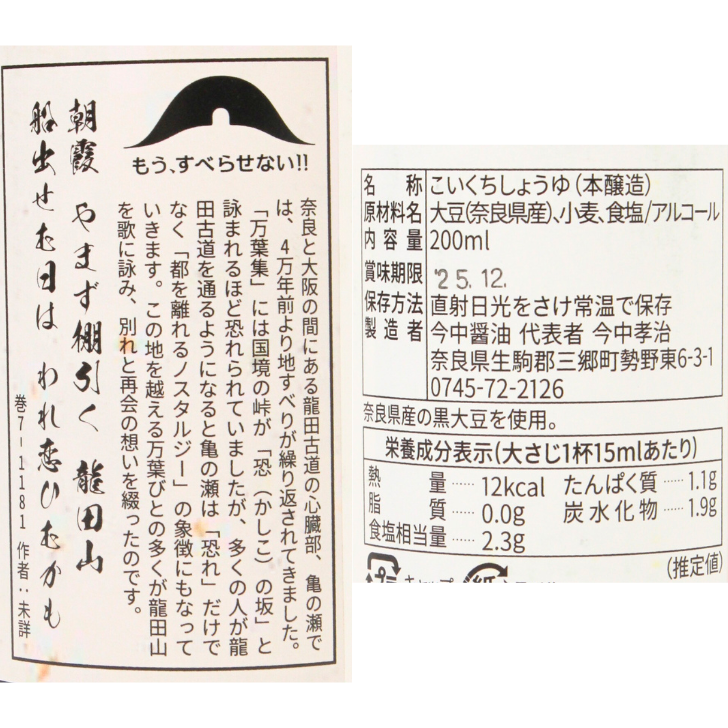 もう、すべらせない!!
朝霞 やまず棚引く 龍田山
船出せむ日は われ恋ひむかも
巻7-1181 作者:未詳
奈良と大阪の間にある龍田古道の心臓部、亀の瀬で
は、4万年前より地すべりが繰り返されてきました。
「万葉集」には国境の峠が「恐(かしこ)の坂」と
詠まれるほど恐れられていましたが、多くの人が龍
田古道を通るようになると亀の瀬は「恐れ」だけで
なく「都を離れるノスタルジー」の象徴にもなって
いきます。この地を越える万葉びとの多くが龍田山
を歌に詠み、別れと再会の想いを綴ったのです。
名称 こいくちしょうゆ(本醸造)
原材料名 大豆(奈良県産)、小麦、食塩/アルコール
内容量 200ml
賞味期限 '25.12.
保存方法 直射日光をさけ常温で保存
製造者 今中醤油 代表者 今中孝治
奈良県生駒郡三郷町勢野東6-3-1
0745-72-2126
奈良県産の黒大豆を使用。
栄養成分表示(大さじ1杯15mlあたり)
熱量 …… 12kcal たんぱく質 …… 1.1g
脂質 …… 0.0g 炭水化物 …… 1.9g
食塩相当量 …… 2.3g
(推定値)